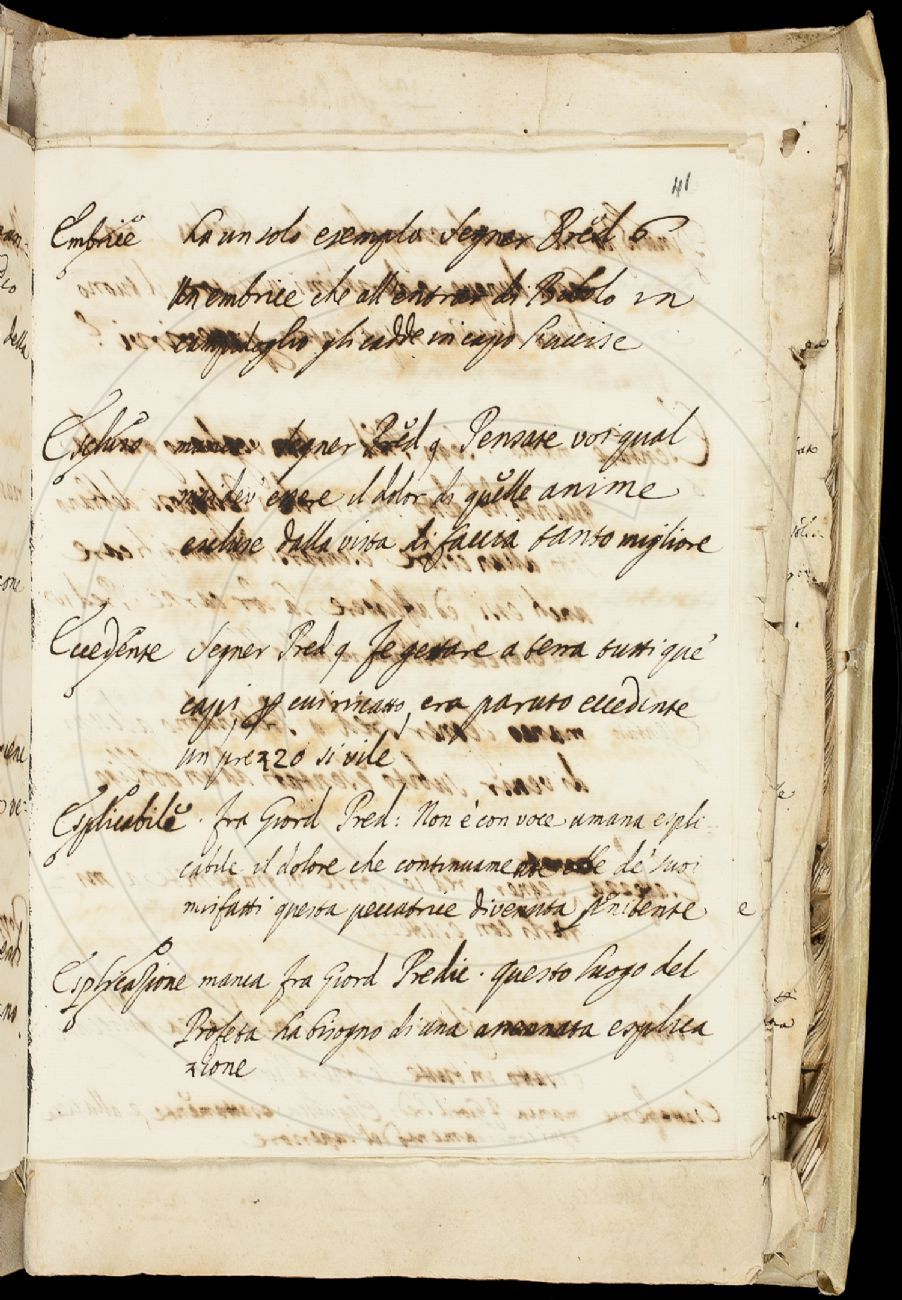 41
Embrice ha un solo esemplo. Segner Pred 6
Un embrice che all'entrar di Bibolo in
campidoglio gli cadde in capo l'uccise
Escluso manca Segner Pred 9 Pensate voi qual
mai dev' essere il dolor di quelle anime
escluse dalla vista di faccia tanto migliore
Eccedente Segner Pred 9 Fe gettare a terra tutti que'
capi p cui riscatto, era paruto eccedente
un prezzo si vile
Esplicabile. fra Giord Pred: Non è con voce umana espli-
cabile il dolore che continuame ebbe de' suoi
misfatti questa peccatrice divenuta penitente e
Esplicazione manca fra Giord Predic. questo luogo del
Profeta ha bisogno di una esplica
zione